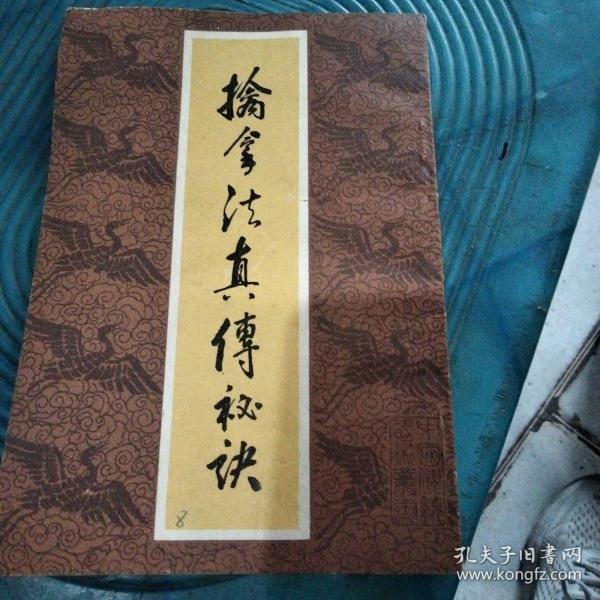 擒拿法真傳秘訣
8
孔夫子旧书网
www.kongfz.com